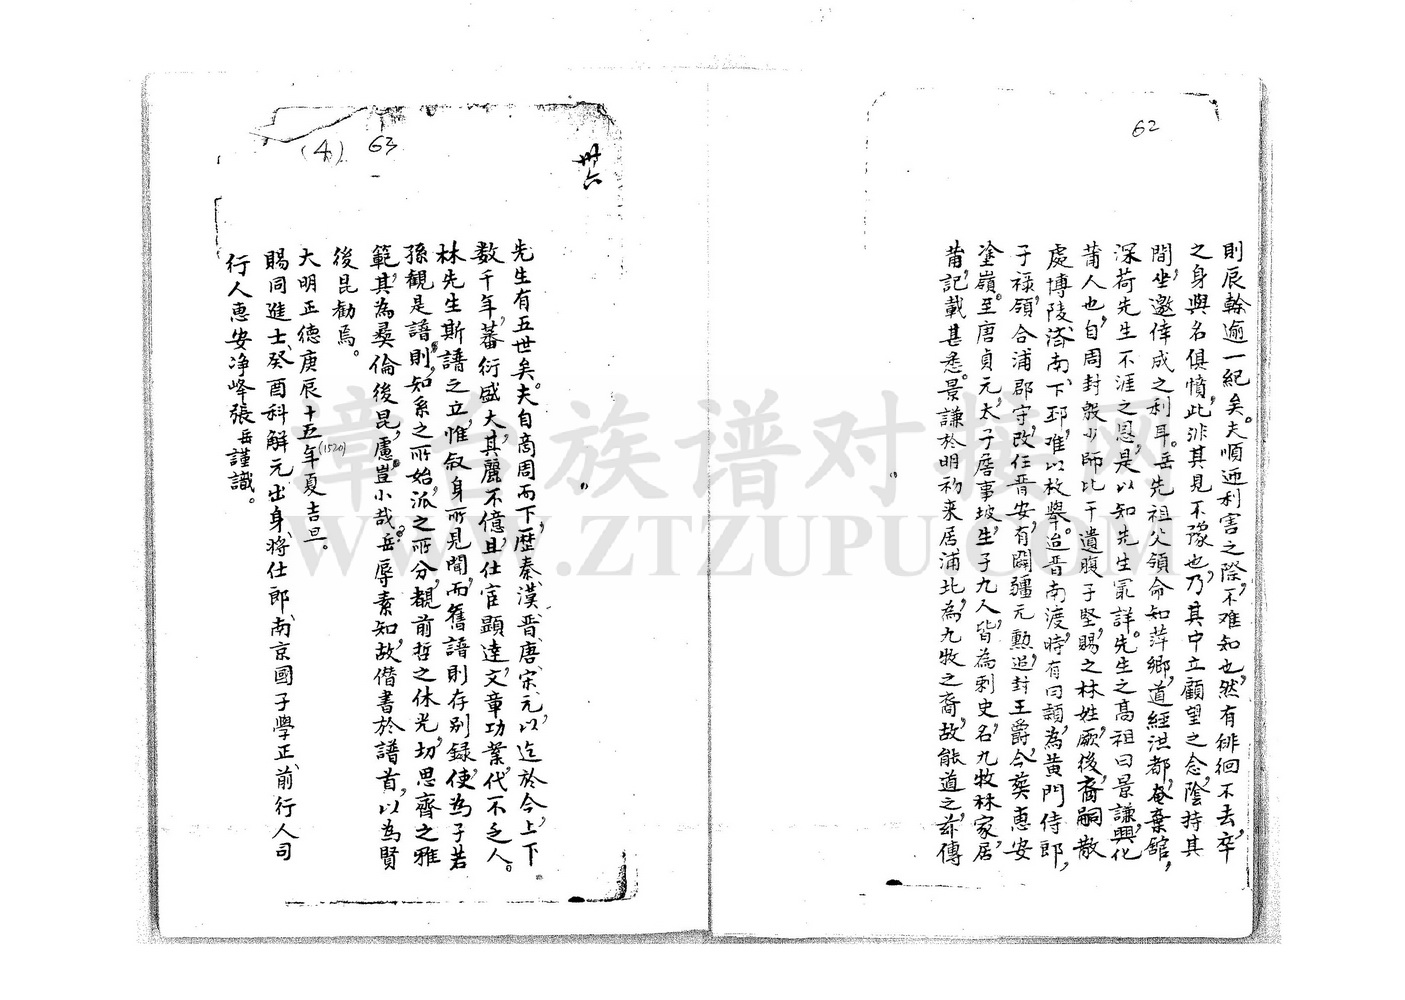 62
則辰翰逾一紀矣。夫順逆利害之際，不难知也，然有徘徊不去，卒
之身與名俱憤，此非其見不豫也，乃其中立顧望之念，陰持其
間，坐邀倖成之利耳。岳先祖父領命知萍鄉，道經洪都，奄棄舘，
深荷先生不涯之恩，是以知先生最詳。先生之髙祖曰景謙，興化
莆人也，自周封殷少師比干遺腹子堅，賜之林姓，厥後裔嗣散
處博陵、済南、下邳，难以枚舉。迨晋南渡，時有曰頴，為黄門侍郎，
子禄，領合浦郡守，改仁晋安，有闢疆元勲，追封王爵，今葬惠安
塗嶺。至唐貞元，太子詹事披，生子九人，皆為刺史，名九牧林家，居
莆，記載甚悉。景謙於明初来居浦北，為九牧之裔，故能道之茲傳
卅六
63
(4)
先生有五世矣。夫自商周而下，歴秦、漢、晋、唐、宋、元，以迄於今，上下
数千年，蕃衍盛大，其麗不億，且仕宦顕達，文章功業，代不乏人。
林先生斯譜之立，惟叙身所見聞，而舊譜則存别録，使為子若
孫観是譜，則知系之所始，派之所分，覩前哲之休光，切思齊之雅
範，其為彞倫後昆，慮豈小哉。岳辱素知，故偕書於譜首，以為賢
後昆勸焉。
大明正德庚辰十五年(1520)夏吉旦。
賜同進士、癸酉科解元出身、將仕郎、南京國子學正、前行人司
行人惠安净峰張岳謹識。
樟台族谱对接网
WWW.ZTZUPU.COM